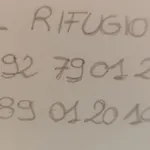 RIFUGIO
92 79012
89 012010